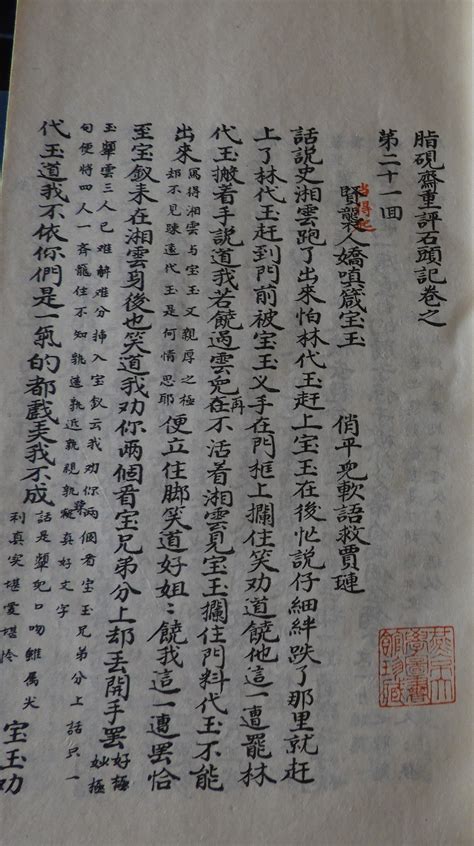 脂硯齋重評石頭記卷之
第二十一回
当得起
賢襲人嬌嗔箴宝玉　俏平兒軟語救賈璉
話說史湘雲跑了出來怕林代玉赶上宝玉在後忙說仔細絆跌了那里就赶
上了林代玉赶到門前被宝玉义手在門框上攔住笑劝道饒他這一遭罷林
代玉搬着手說道我若饒過雲兒在再不活着湘雲見宝玉攔住門料代玉不能
出來 寫得湘雲与宝玉又親厚之極却不見踈遠代玉是何情思耶 便立住脚笑道好姐：饒我這一遭罷恰
至宝釵来在湘雲身後也笑道我劝你两個看宝兄弟分上却丟開手罷 好極妙極
玉顰雲三人已难解难分挿入宝釵云我劝你两個看宝玉兄弟分上話只一
句便將四人一齊籠住不知孰遠孰近孰親孰踈真好文字
代玉道我不依你們是一氣的都戲弄我不成 話是顰兒口吻雖属尖利真实堪愛堪怜 宝玉劝
燕京大學圖書館珍藏